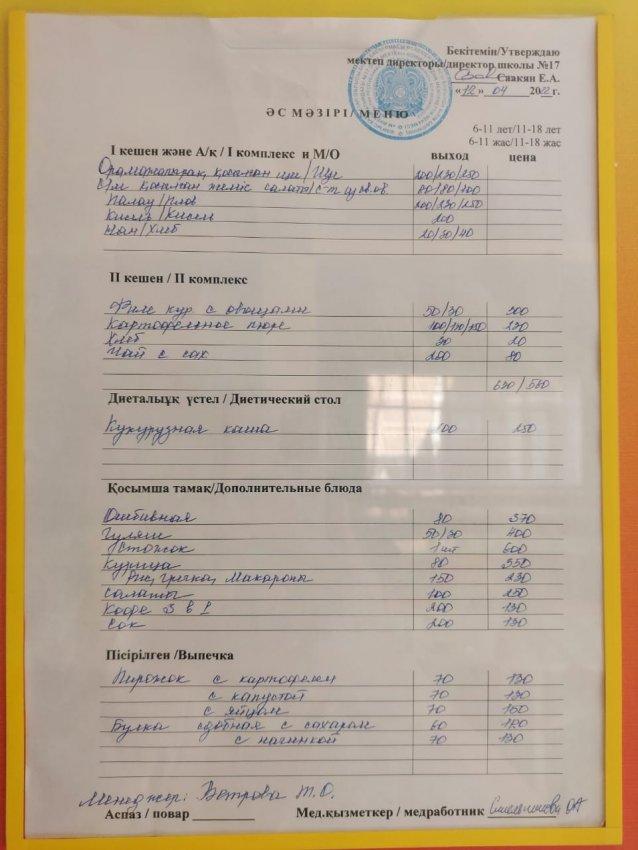 Бекітемін/Утверждаю
мектеп директоры/директор школы №17
Саакян Е.А.
«12» 04 2022 г.
ӘС МӘЗІРІ/ МЕНЮ
6-11 лет/11-18 лет
6-11 жас/11-18 жас
І кешен және А/қ / І комплекс и М/О выход цена
200/230/250
қосылған жеміс салаты/с-т из ов. 80/80/100
Палау/Плов 200/230/250
Кисель/Кисель 200
Нан/Хлеб 20/30/40
ІІ кешен / ІІ комплекс
Филе кур с овощами 50/30 300
Картофельное пюре 100/130/150 130
Хлеб 30 20
Чай с сах 200 80
/560
Диеталыұқ үстел / Диетический стол
Кукурузная каша 100 250
Қосымша тамақ/Дополнительные блюда
Отбивная 80 370
Гуляш 50/30 400
1 шт 600
Курица 80 350
Рис, гречка, Макароны 150 230
Салаты 100 250
Кофе 3 в 1 200 130
Сок 200 130
Пісірілген /Выпечка
Пирожок с картофелем 70 130
с капустой 70 130
с яйцом 70 150
Булка сдобная с сахаром 60 120
с начинкой 70 130
Менеджер: Ветрова Т.О.
Аспаз / повар Мед.қызметкер / медработник